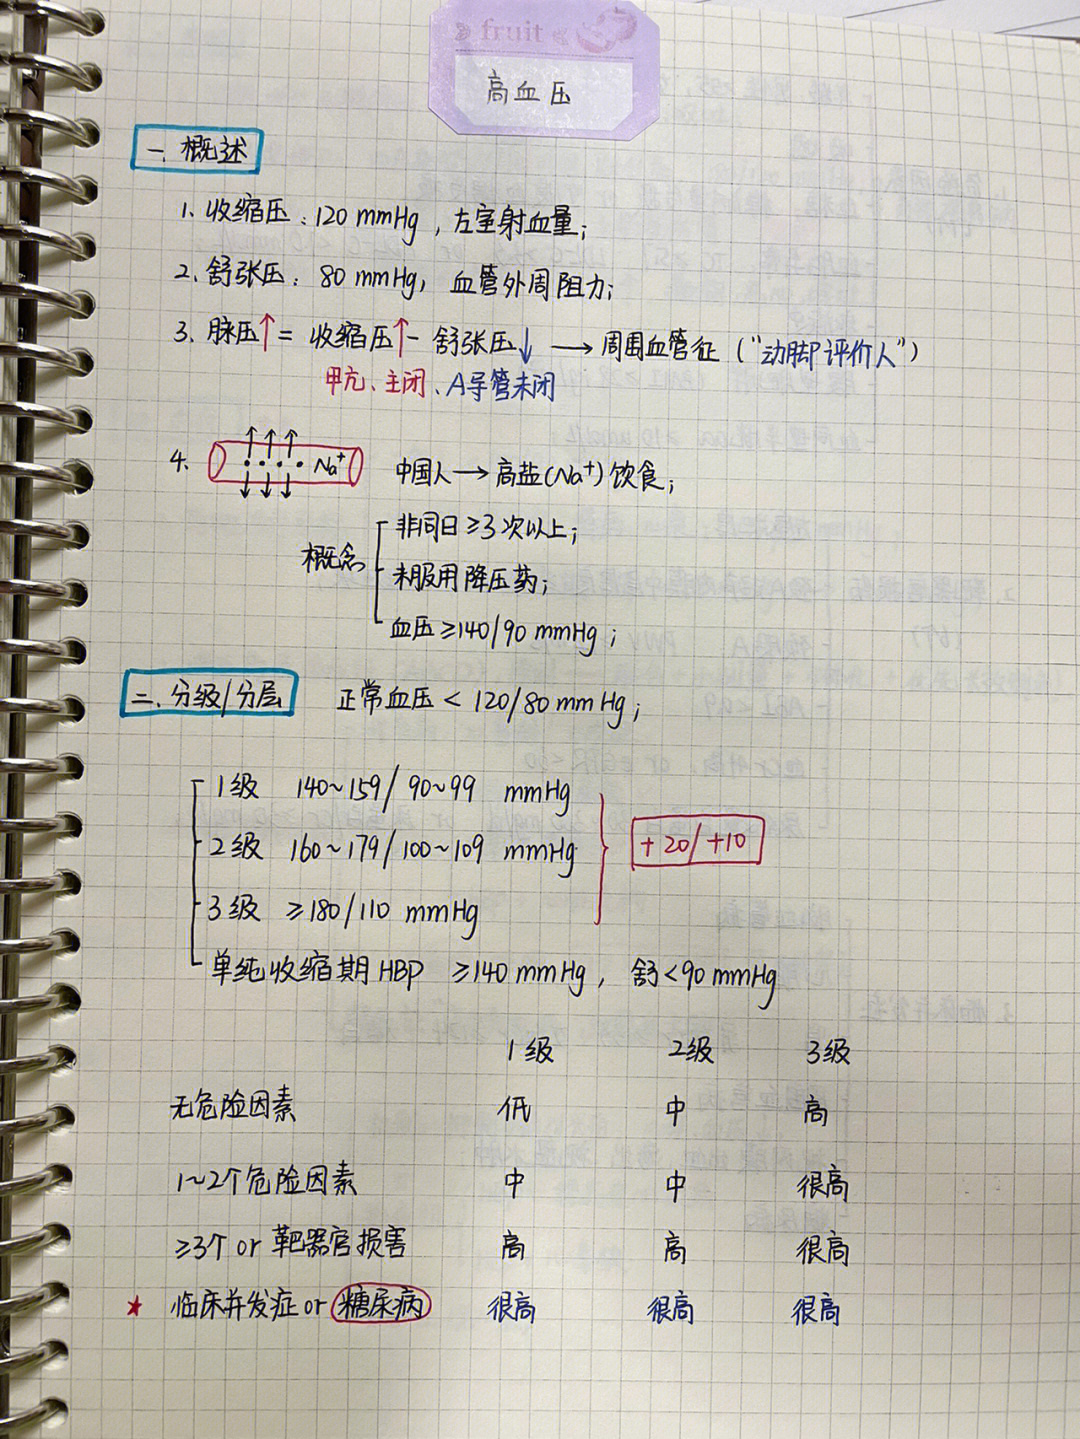 fruit
高血压
一、概述
1、收缩压：120 mmHg，左室射血量；
2、舒张压：80 mmHg，血管外周阻力；
3、脉压↑ = 收缩压↑ - 舒张压↓ → 周围血管征（“动脚评价人”）
甲亢、主闭、A导管未闭
4、 Na⁺ 中国人→高盐(Na⁺)饮食；
非同日≥3次以上；
概念 未服用降压药；
血压≥140/90 mmHg；
二、分级/分层 正常血压＜120/80 mmHg；
1级 140~159/90~99 mmHg
2级 160~179/100~109 mmHg +20/+10
3级 ≥180/110 mmHg
单纯收缩期HBP ≥140 mmHg，舒＜90 mmHg
1级 2级 3级
无危险因素 低 中 高
1~2个危险因素 中 中 很高
≥3个 or 靶器官损害 高 高 很高
★ 临床并发症 or 糖尿病 很高 很高 很高